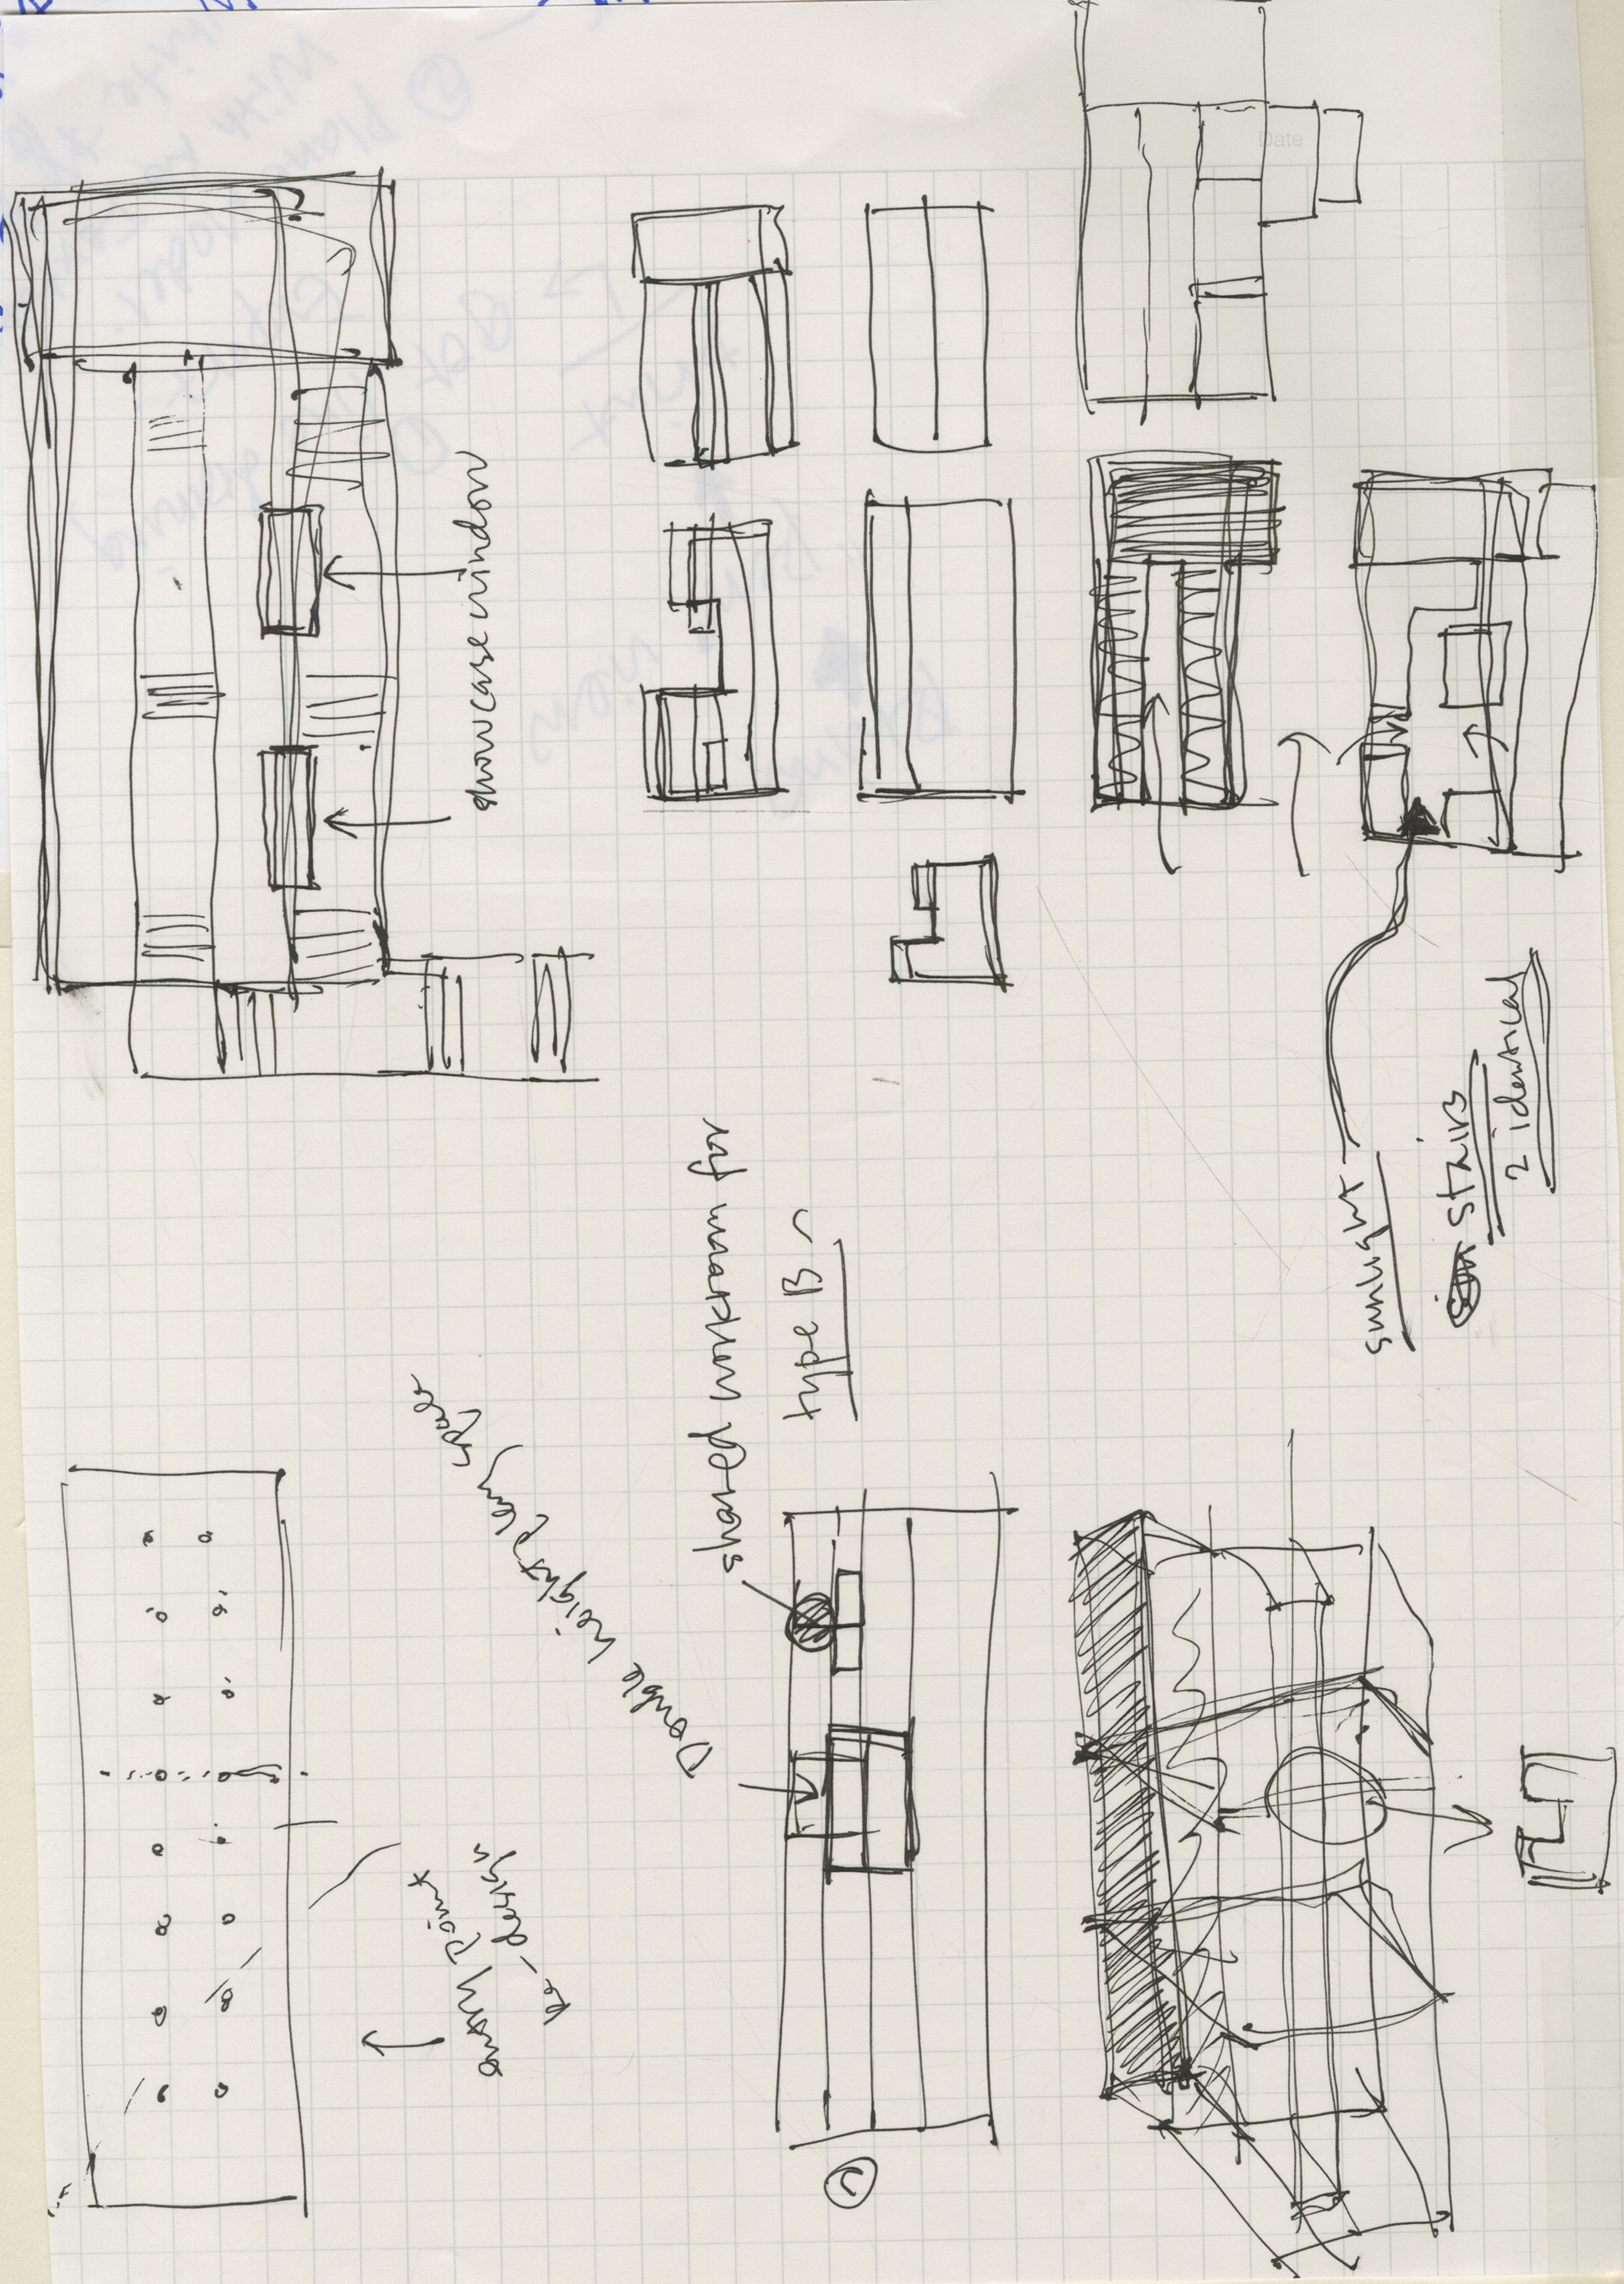 Date
showcase window
shared workroom for
type B
Double height play space
sunlight
stairs
2 identical
entry point
Re-design